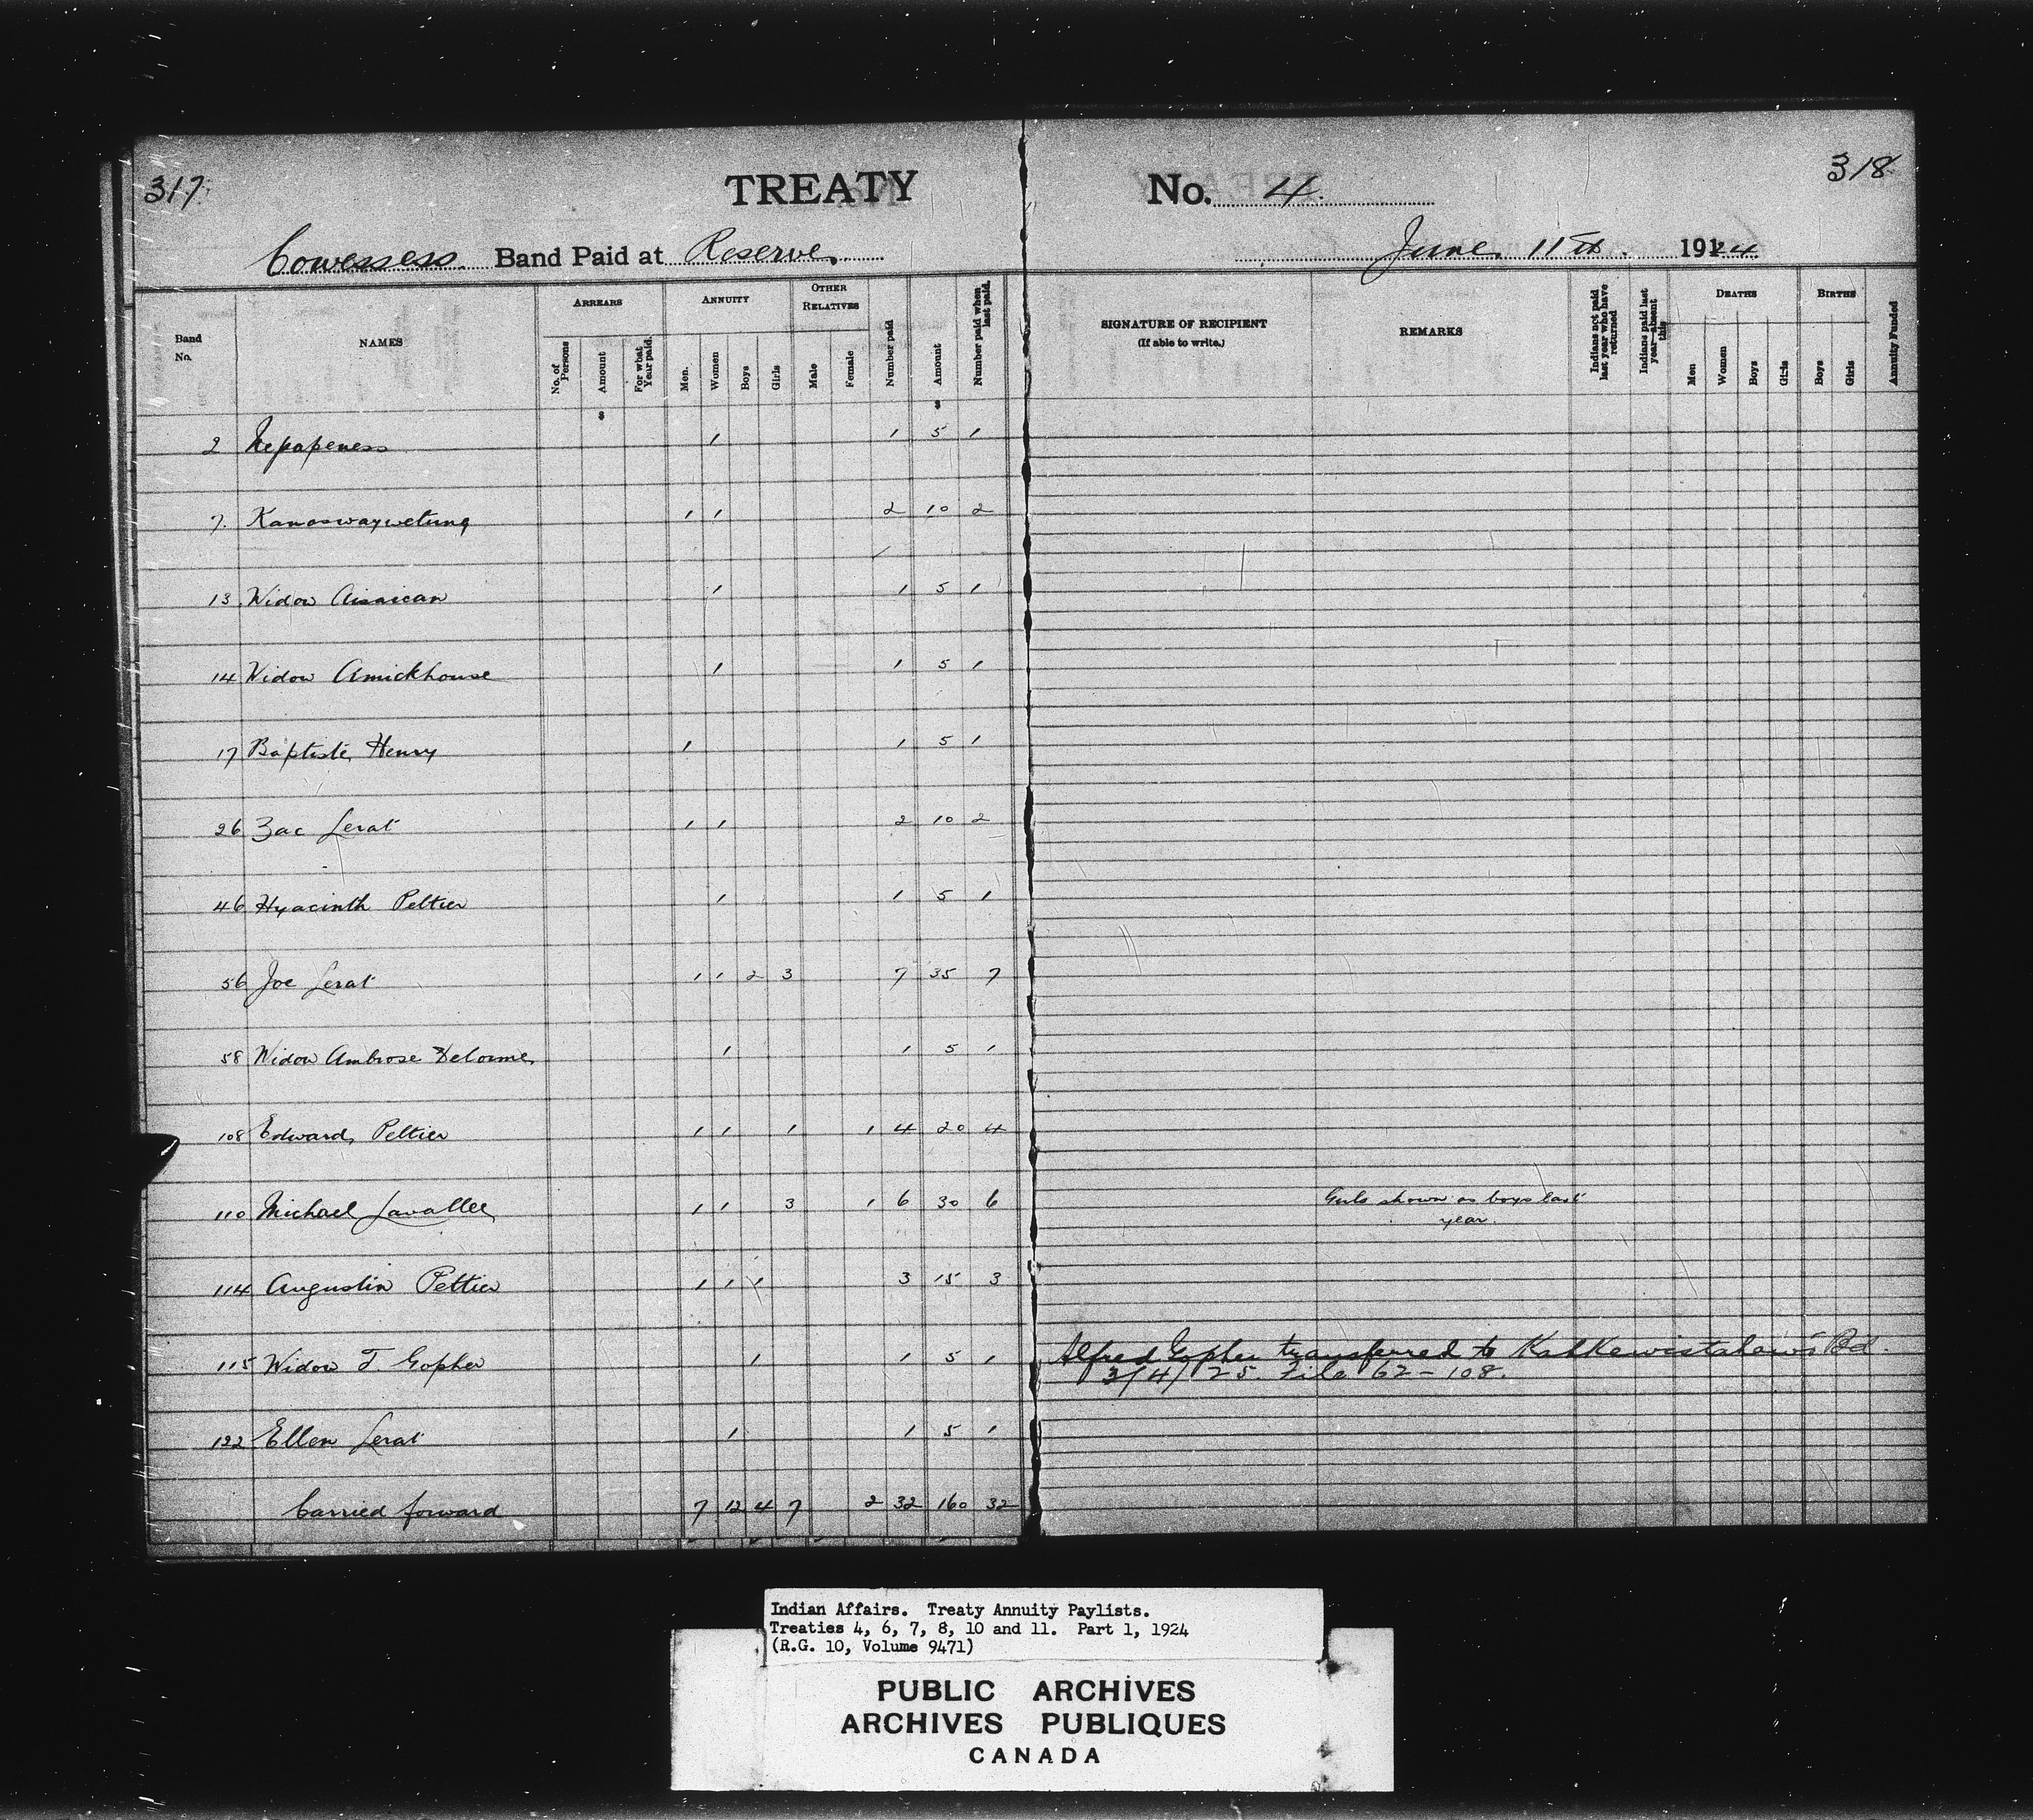 317.
TREATY No. 4.
318
Cowessess Band Paid at Reserve. June 11th. 1924
Band No.
NAMES
ARREARS
No. of Persons
Amount
For what Year paid.
ANNUITY
Men.
Women
Boys
Girls
OTHER RELATIVES
Male
Female
Number paid
Amount
Number paid when last paid.
SIGNATURE OF RECIPIENT
(If able to write.)
REMARKS
Indians not paid last year who have returned
Indians paid last year—absent this
DEATHS
Men
Women
Boys
Girls
BIRTHS
Boys
Girls
Annuity Funded
$ $
2 Nepapeness 1 1 5 1
7. Kanaswaywetung 1 1 2 10 2
13 Widow Aisaican 1 1 5 1
14 Widow Amickhouse 1 1 5 1
17 Baptiste Henry 1 1 5 1
26 Zac Lerat 1 1 2 10 2
46 Hyacinth Peltier 1 1 5 1
56 Joe Lerat 1 1 2 3 7 35 7
58 Widow Ambrose Delorme 1 1 5 1
108 Edward Peltier 1 1 1 1 4 20 4
110 Michael Lavallee 1 1 3 1 6 30 6 Girls shown as boys last
year.
114 Augustin Peltier 1 1 1 3 15 3
115 Widow T. Gopher 1 1 5 1 Alfred Gopher transferred to Kahkewistahaw's Bd.
3/4/25. File 62-108.
122 Ellen Lerat 1 1 5 1
Carried forward 7 12 4 7 2 32 160 32
Indian Affairs. Treaty Annuity Paylists.
Treaties 4, 6, 7, 8, 10 and 11. Part 1, 1924
(R.G. 10, Volume 9471)
PUBLIC ARCHIVES
ARCHIVES PUBLIQUES
CANADA